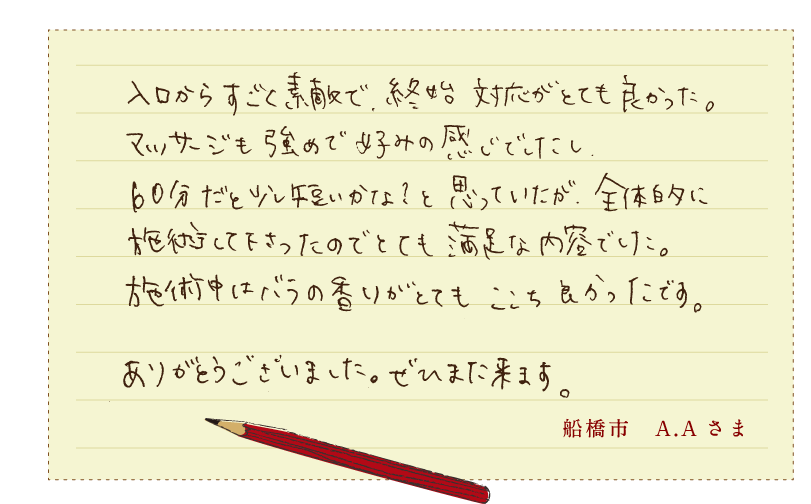 入口からすごく素敵で、終始 対応がとても良かった。
マッサージも強めで好みの感じでしたし、
60分だと少し短いかな?と思っていたが、全体的に
施術して下さったのでとても満足な内容でした。
施術中はバラの香りがとても ここち良かったです。
ありがとうございました。ぜひまた来ます。
船橋市 A.A さま